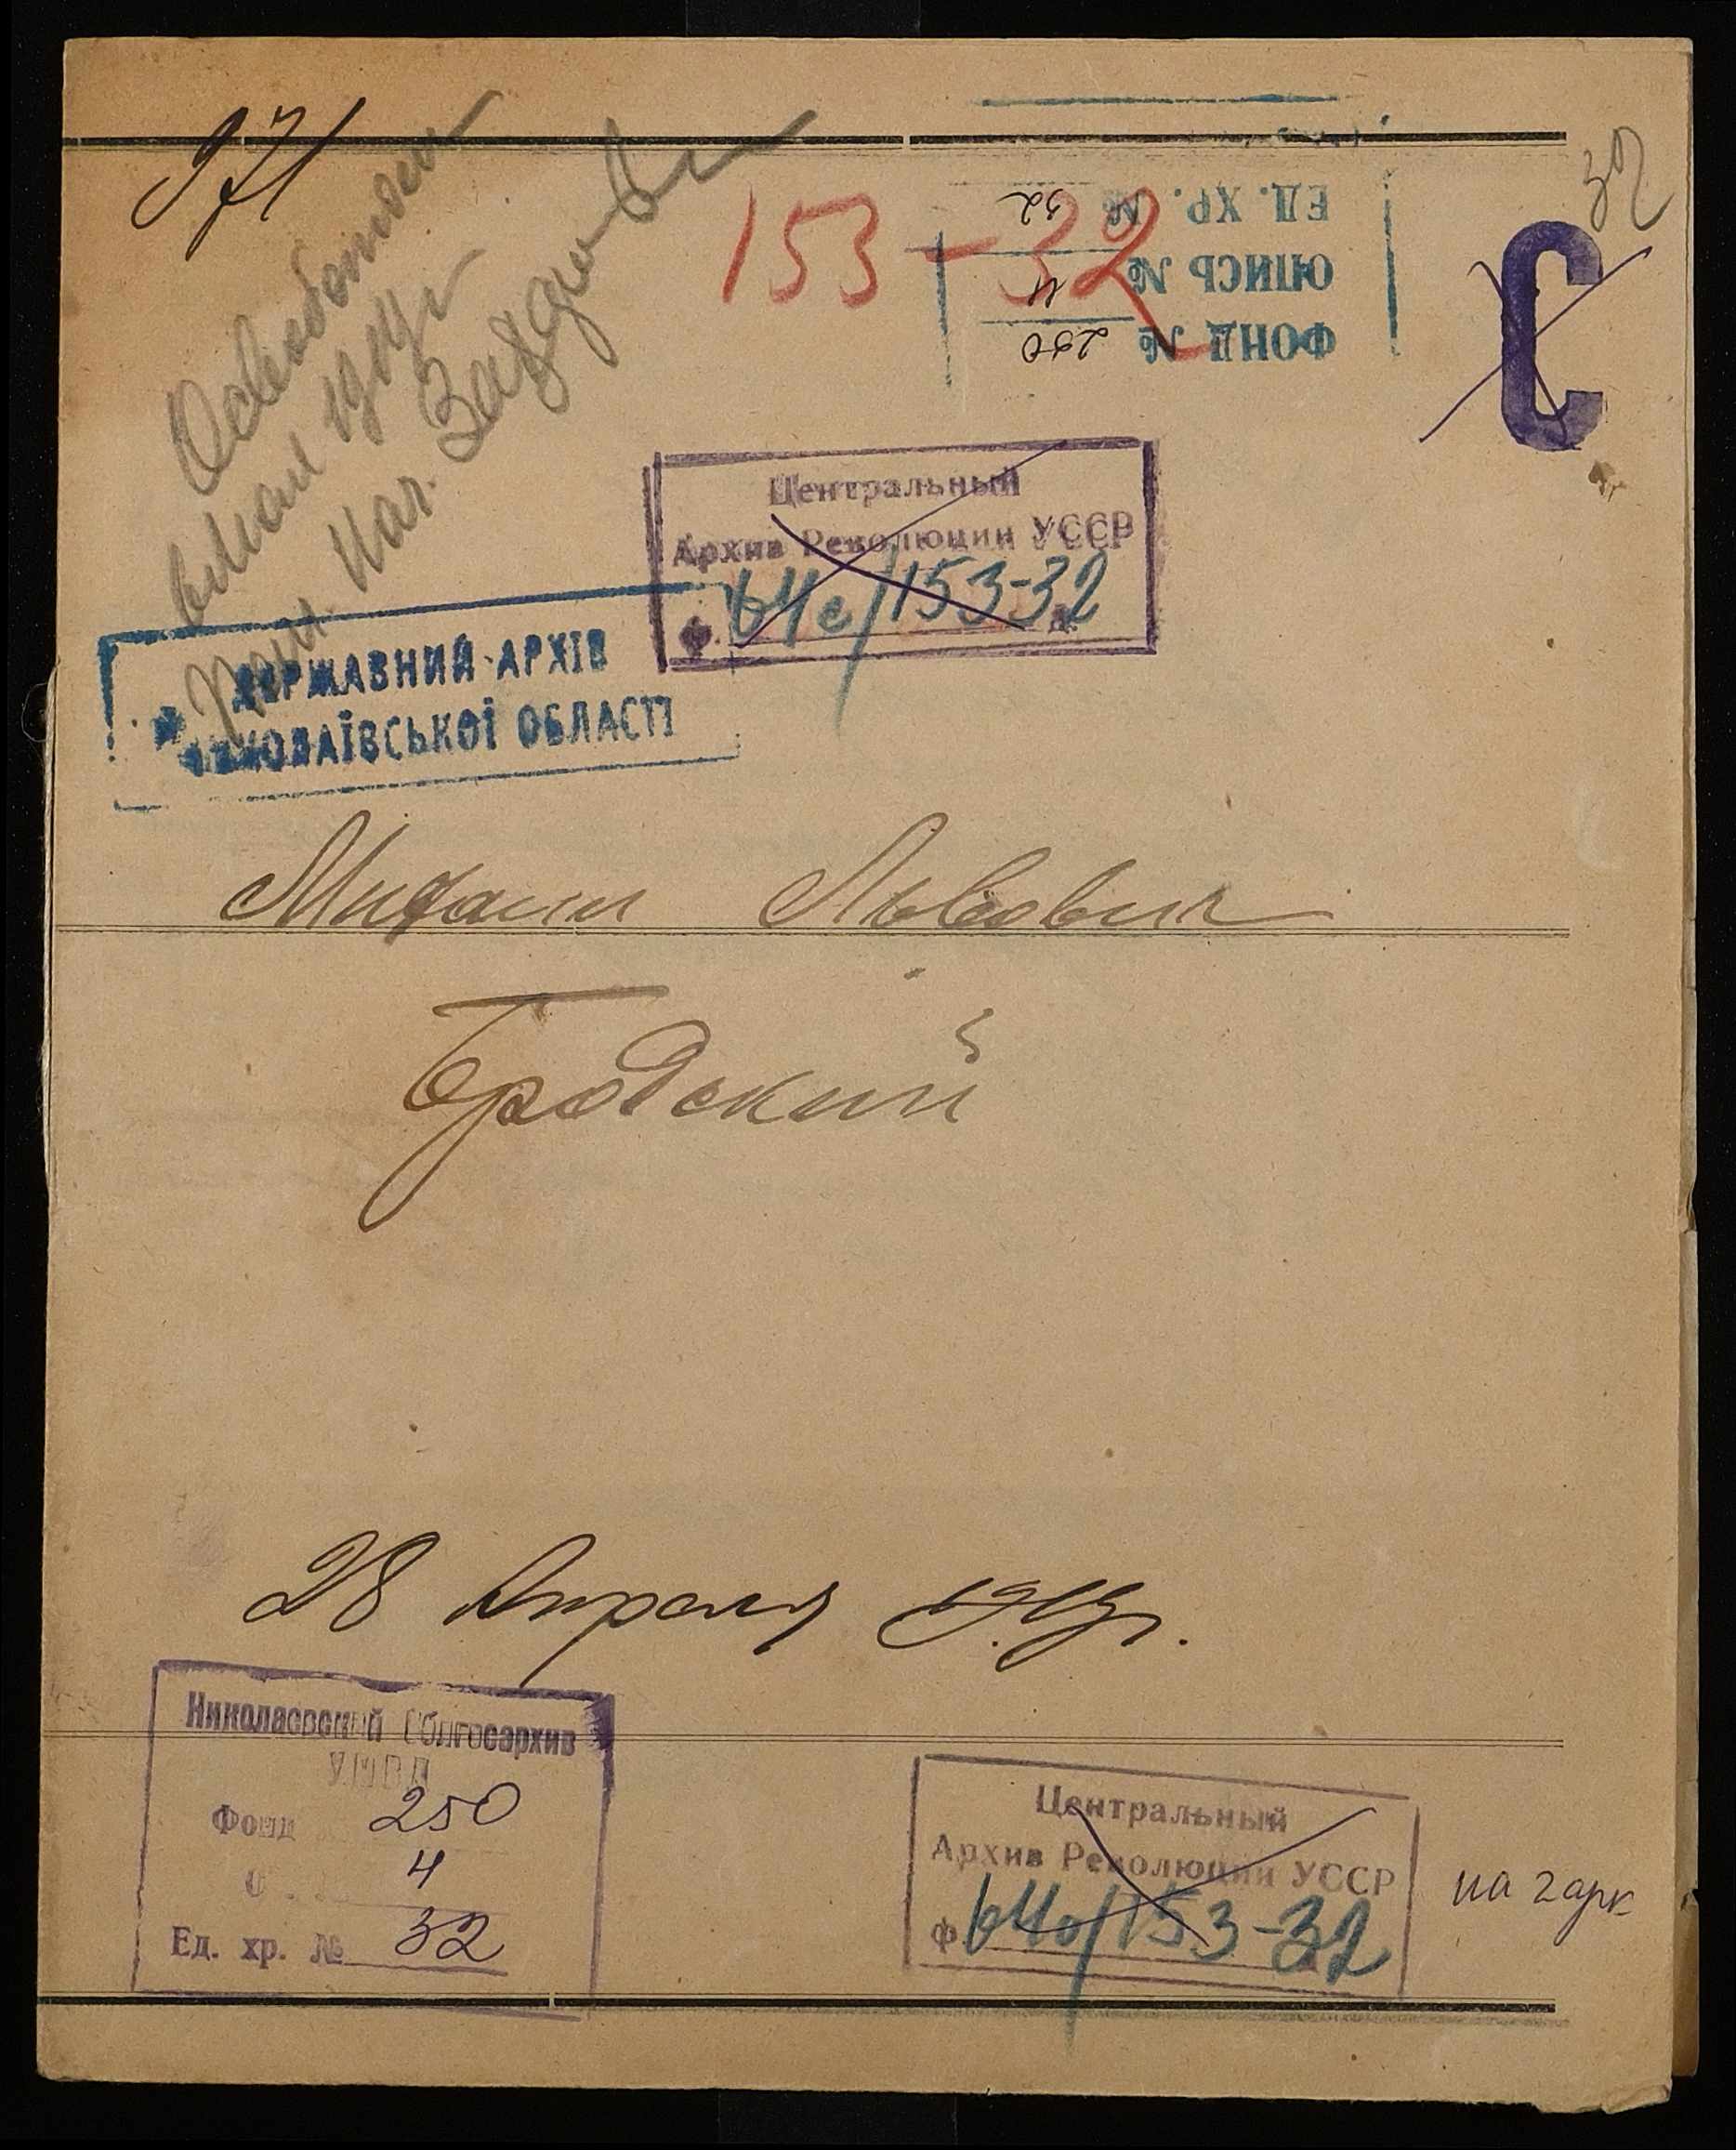 971
32
153-32
ЕД. ХР. № 32
ОПИСЬ № 4
ФОНД № 250
С
в Мае 1919 г
Нач.
Центральный
Архив Революции УССР
ф. 64с/153-32 д.
ДЕРЖАВНИЙ АРХІВ
МИКОЛАЇВСЬКОЇ ОБЛАСТІ
Михаил Львович
Бродский
28 Апреля 1919г.
Николаевский Облгосархив
УМВД
Фонд 250
О. 4
Ед. хр. № 32
Центральный
Архив Революции УССР
ф. 64с/153-32